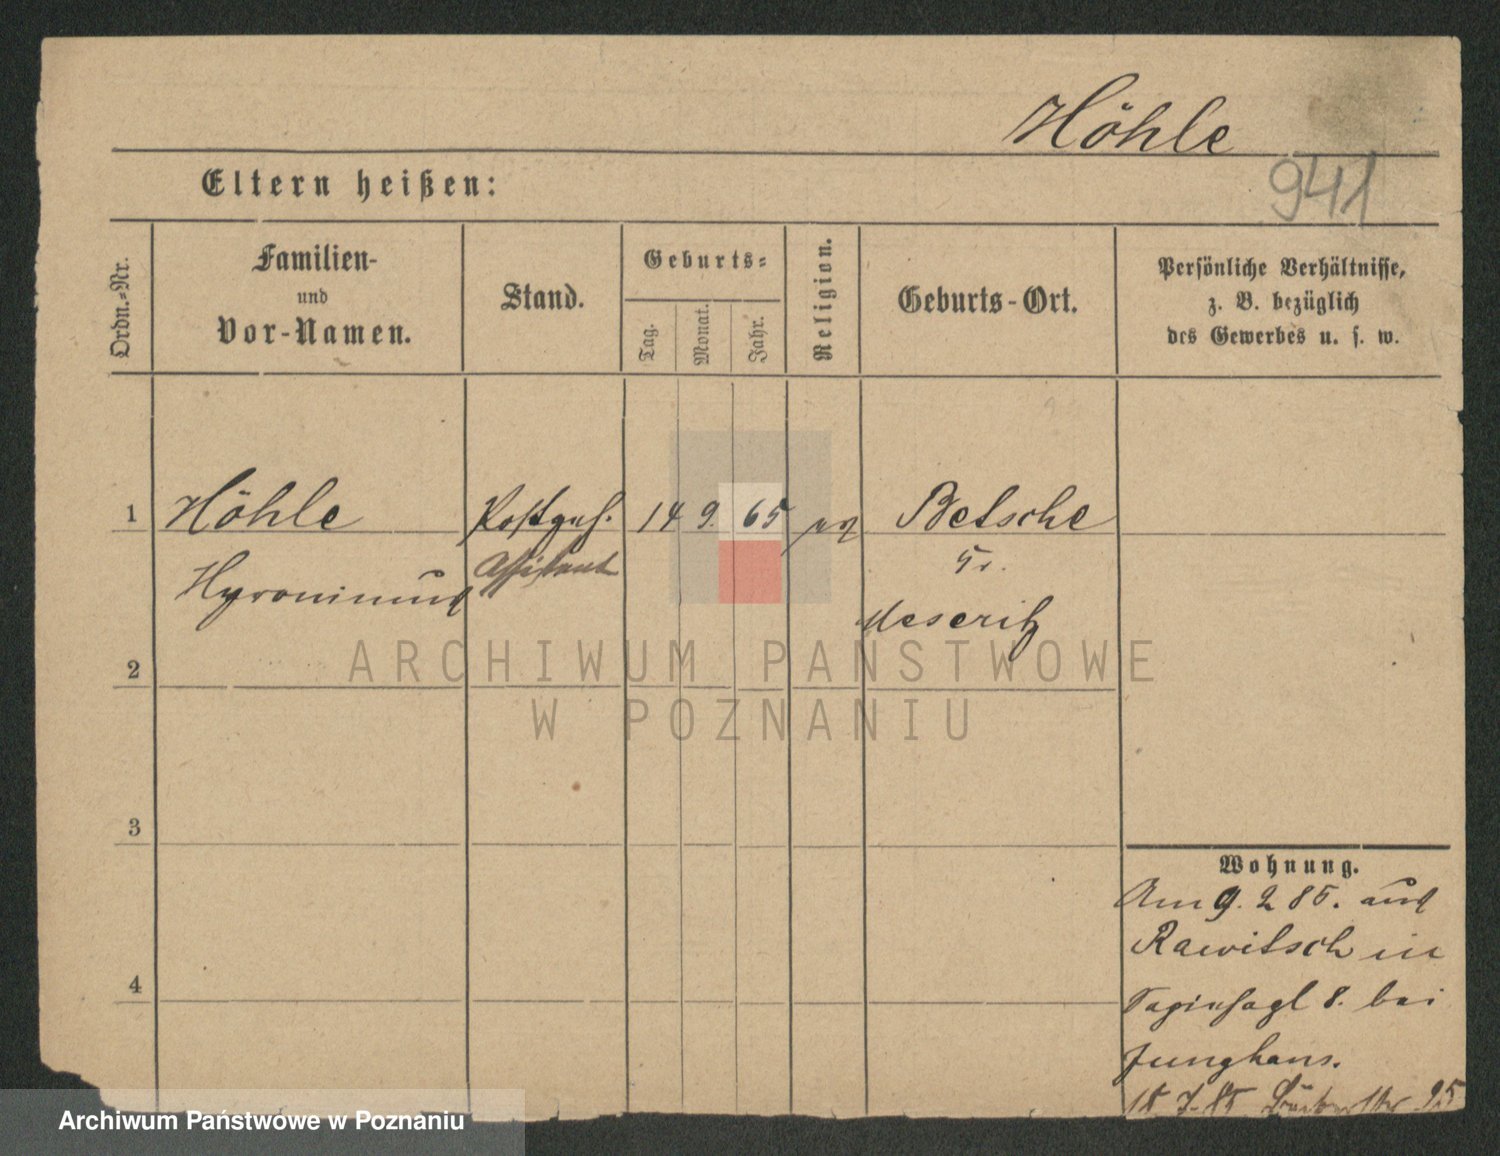 Höhle
941
Eltern heißen:
Ordn.-Nr.
Familien-
und
Vor-Namen.
Stand.
Geburts-
Tag.
Monat.
Jahr.
Religion.
Geburts-Ort.
Persönliche Verhältnisse,
z. B. bezüglich
des Gewerbes u. s. w.
1 Höhle 14 9. 65 Betsche
Assistent
Kr.
Meseritz
2
ARCHIWUM PAŃSTWOWE
W POZNANIU
3
4
Wohnung.
Am 9. 2 85. aus
Rawitsch in
8. bei
Junghans.
18 7. 85 25
Archiwum Państwowe w Poznaniu